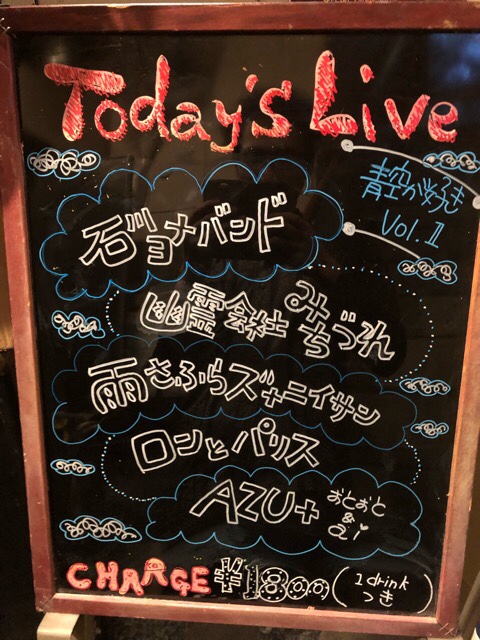 Today's Live
青空が好き
Vol.1
石ジョナバンド
幽霊会社 みちづれ
雨さふらズ+ニイサン
ロンとパリス
AZU+ おとおと
&
ai
CHARGE ¥1800 (1drink
つき)